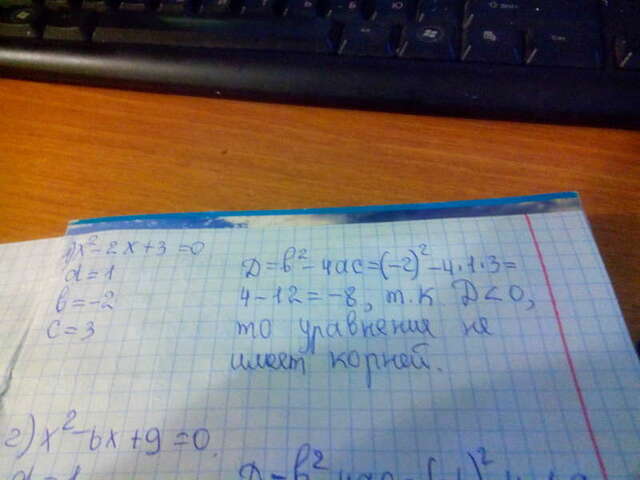 1) x²-2x+3=0
a=1
b=-2
c=3
D=b²-4ac=(-2)²-4·1·3=
4-12=-8, т.к D<0,
то уравнения не
имеет корней.
2) x²-6x+9=0